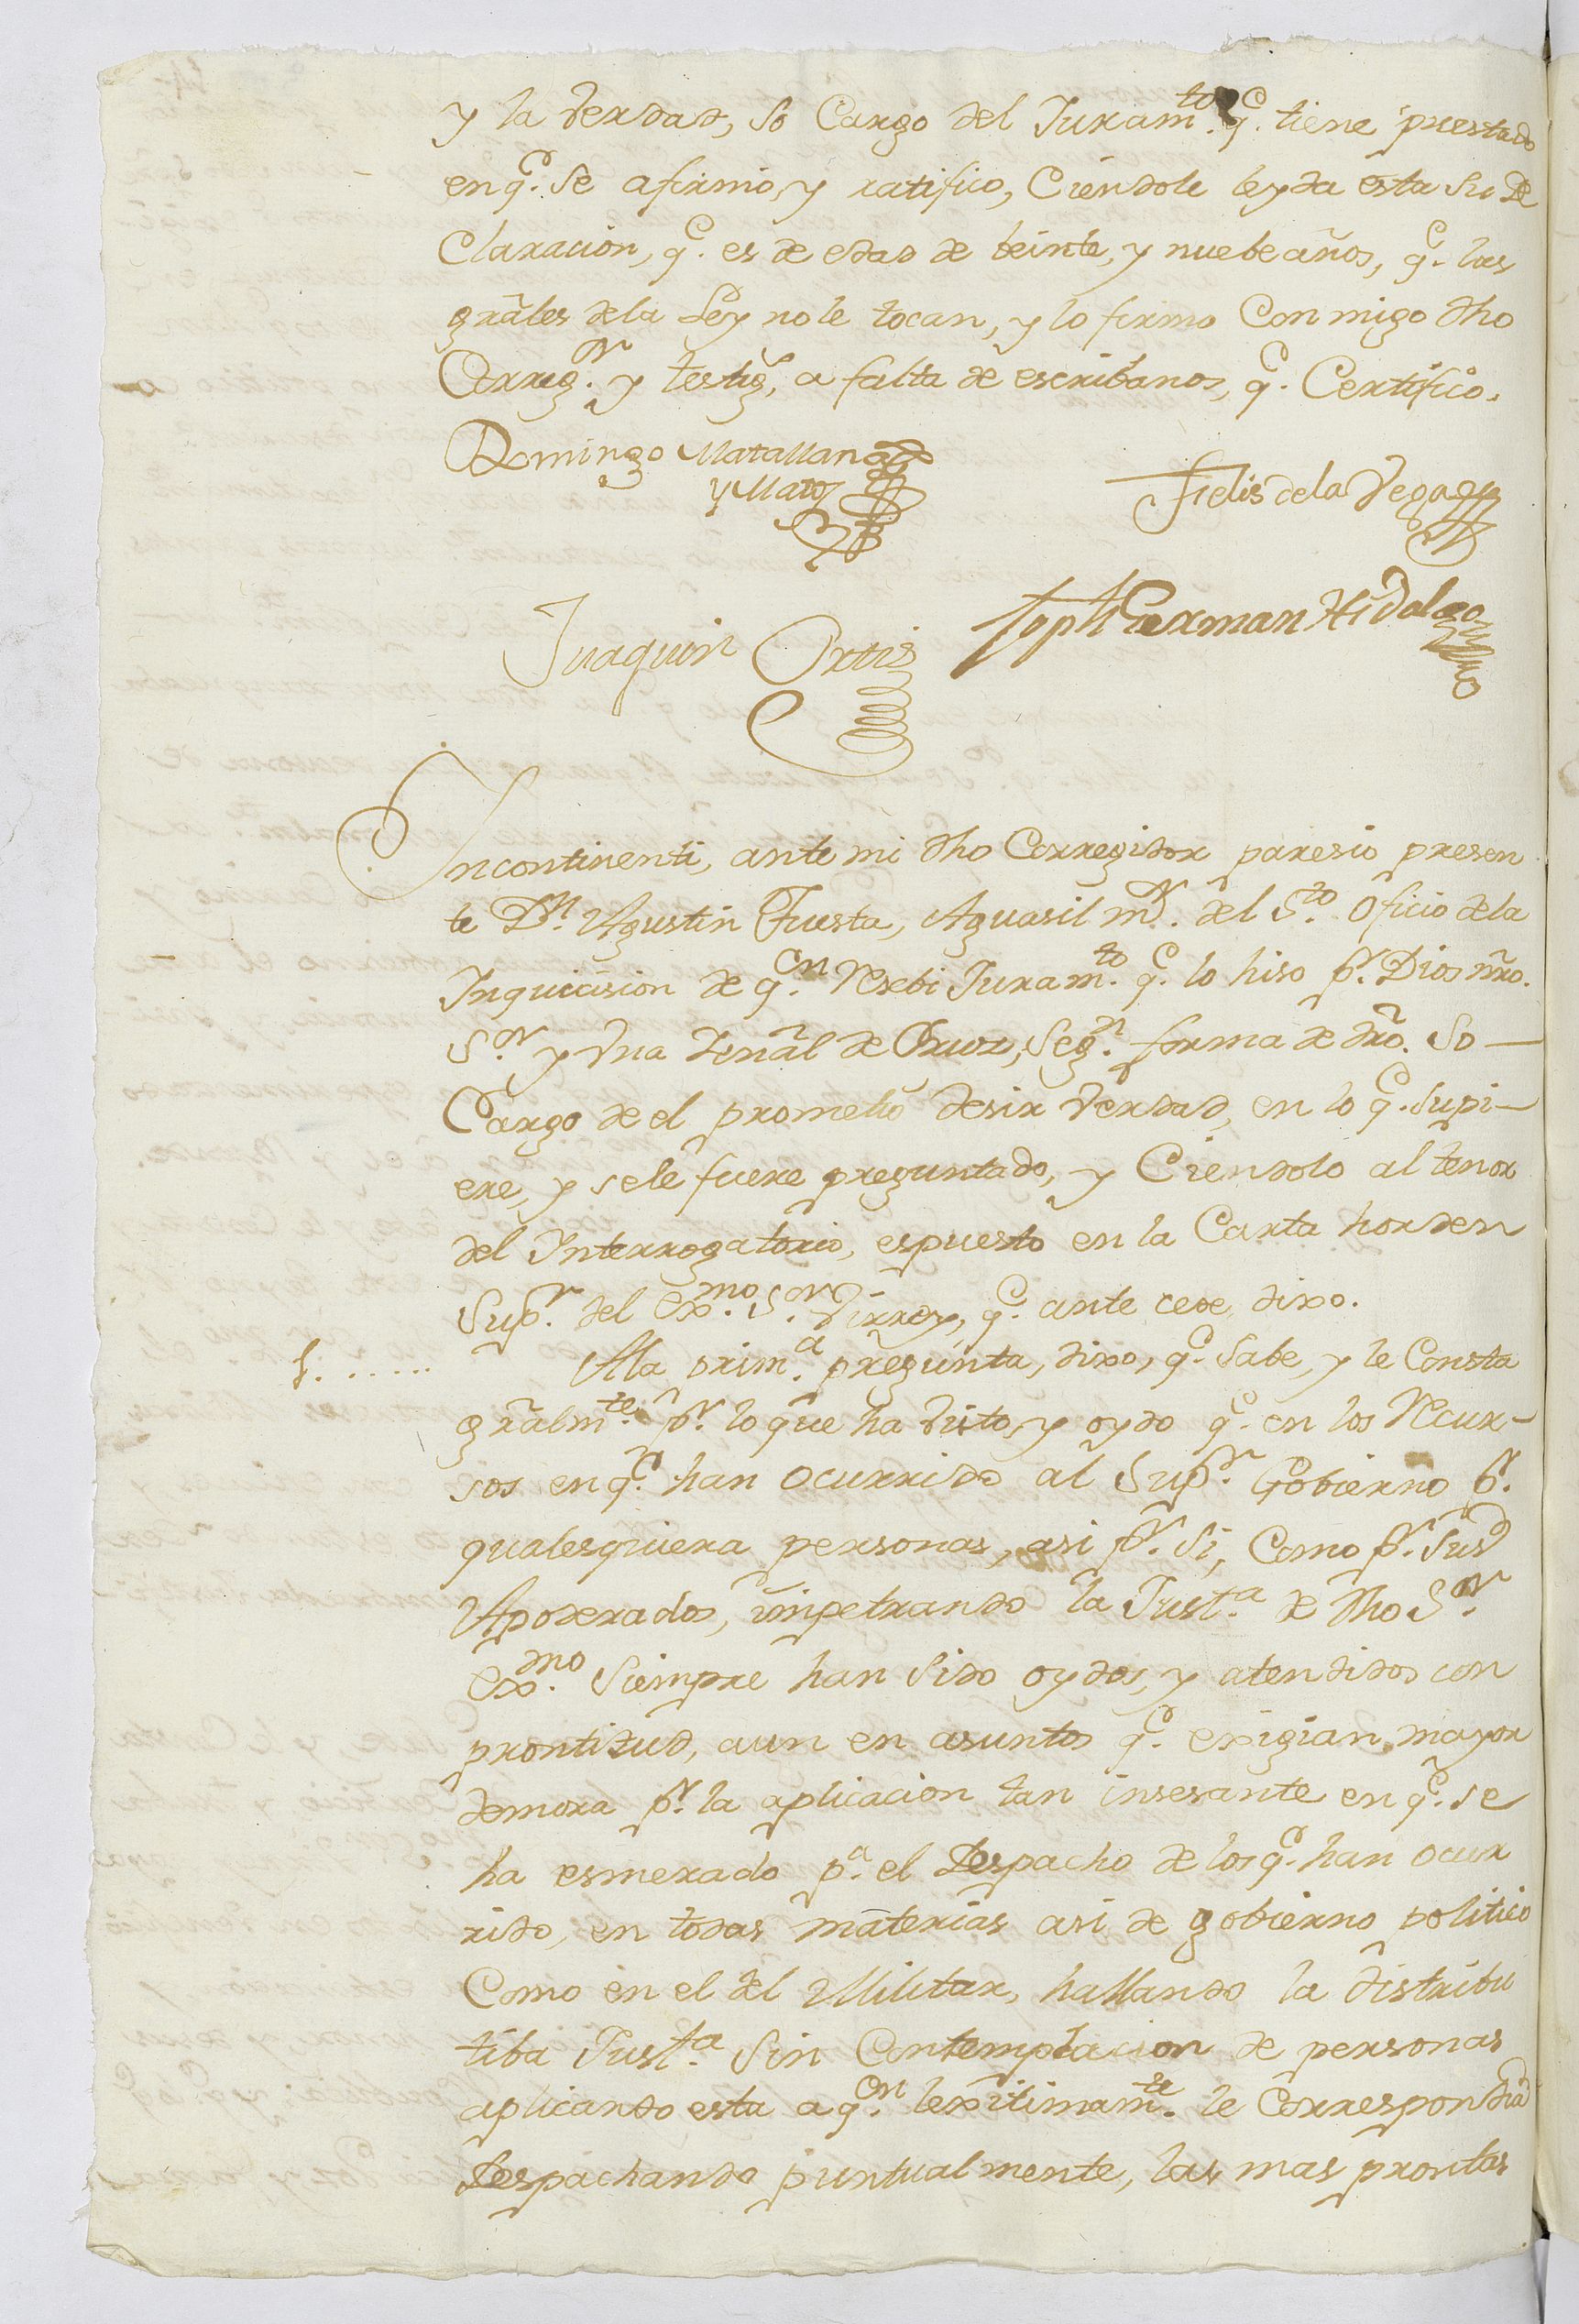 y la verdad, so Cargo del Juram.to q.e tiene prestado
en q.e se afirmo, y ratifico, Ciendole leyda esta su De
Claracion, q.e es de edad de beinte, y nuebe años, q.e las
grãles dela Ley no le tocan, y lo firmo Con migo dho
Correg.or y testig.s a falta de escribanos, q.e Certifico.
Domingo Matallana
y Matos
Fielis dela Vega
Juaquin Ortis
Joph German Hidalgo
Incontinenti, ante mi dho Corregidor paresio presen
te D.n Agustin Fuesta, Aguasil m.or del S.to Oficio dela
Inquicision de q.en Resebi Juram.to q.e lo hiso p.r Dios nrõ.
S.or y Vna Señal de Cruz, Seg.n forma de drõ. So
Cargo de el prometio desir Verdad, en lo q.e Supi-
ere, y sele fuere preguntado, y Ciendolo al tenor
del Interrogatorio, espuesto en la Carta horden
Sup.r del Ex.mo S.or Virrey, q.e ante cede, dixo.
1. . . . . . Ala prim.a pregunta, dixo, q.e Sabe, y le Consta
grãlm.te p.r lo que ha visto, y oydo q.e en los Recur-
sos en q.e han ocurrido al Sup.r Gobierno p.r
qualesquiera personas, asi p.r Si, Como p.r Sus
Apoderados, impetrando la Just.a de dho S.or
Ex.mo Siempre han Sido oydos, y atendidos con
prontitud, aun en asuntos q.e exigian mayor
demora p.r la aplicacion tan insesante en q.e se
ha esmerado p.a el Despacho de los q.e han ocur
rido, en todas materias asi de gobierno politico
Como en el del Militar, hallando la distribu
tiba Just.a Sin Contemplacion de personas
aplicando esta a q.en lexitimam.te le Correspondia
Despachando puntualmente, las mas prontas